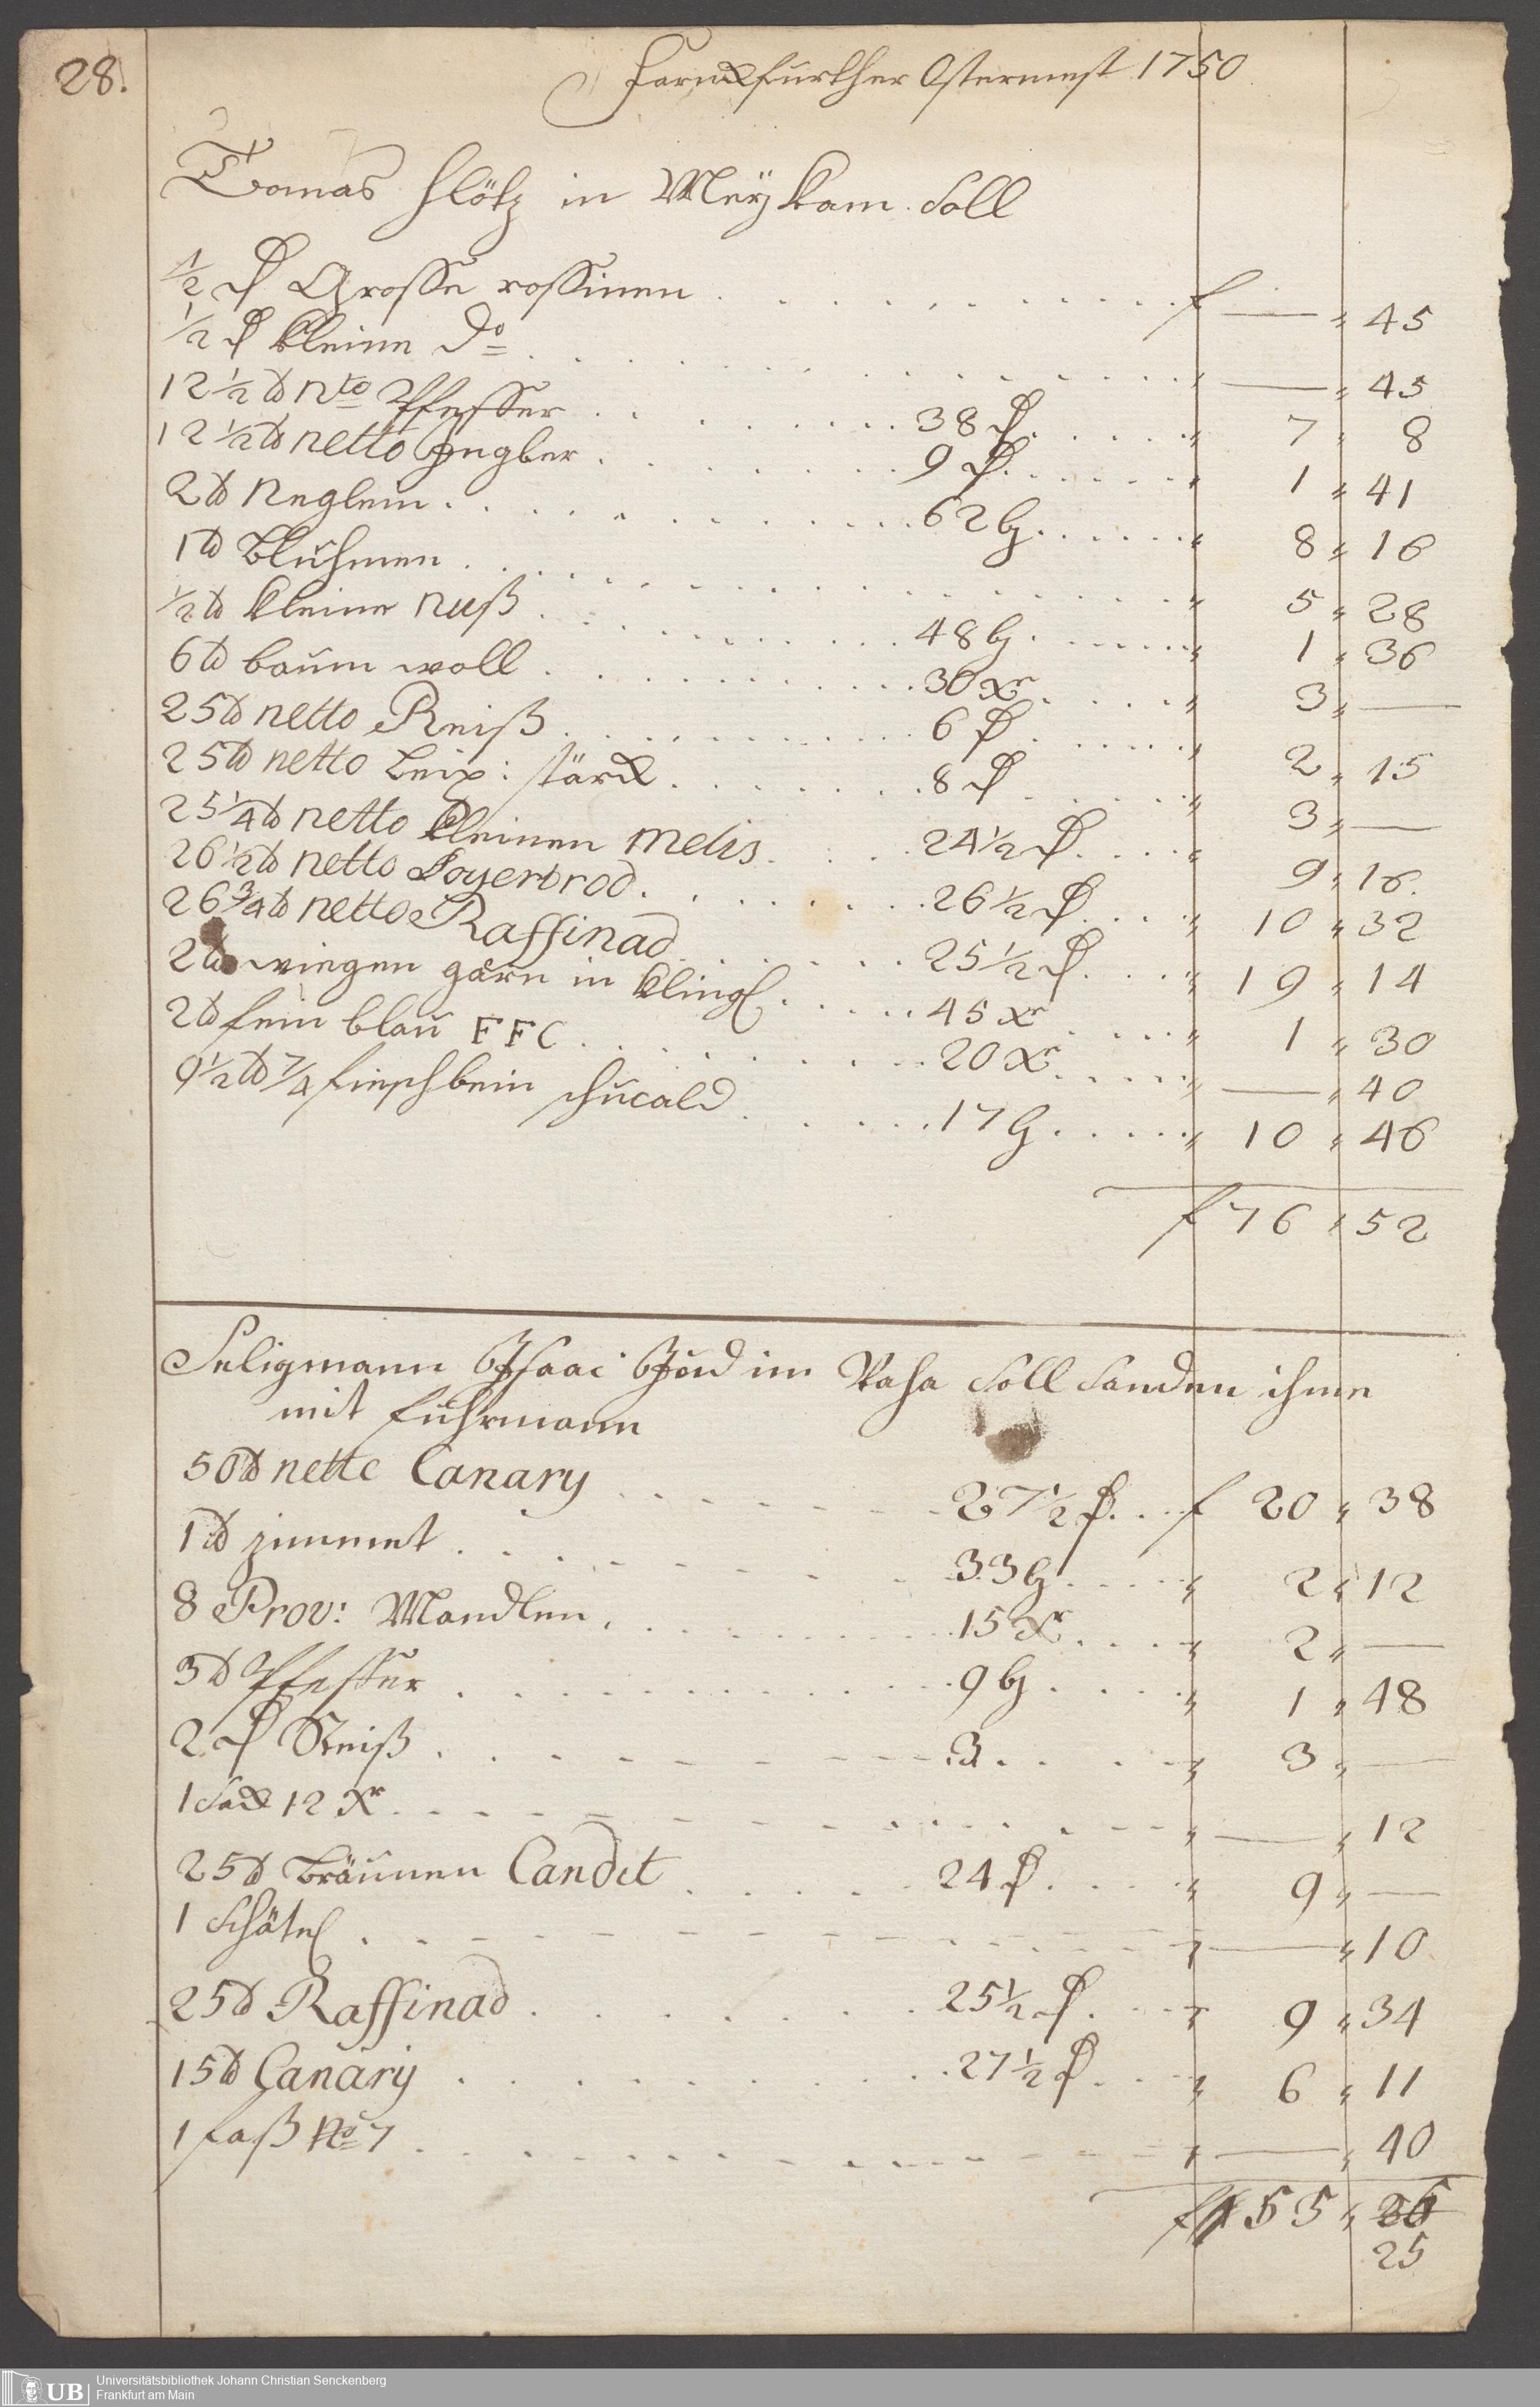 28.
Farnckfurther Ostermest 1750
Tomas Flötz in Meÿ Kam. Soll
1/2 ₰ Grosse rossinen . . . f — " 45
1/2 ₰ kleine Do . . . " — " 45
12 1/2 ℔ Nto Pfeffer . . . 38 ₰ . . . " 7 " 8
12 1/2 ℔ netto Jngber . . . 9 ₰ . . . " 1 " 41
2 ℔ Neglein . . . 62 bz . . . " 8 " 16
1 ℔ Bluhmen . . . " 5 " 28
1/2 ℔ kleine Nuß . . . 48 bz . . . " 1 " 36
6 ℔ baum woll . . . 30 Xr . . . " 3 " —
25 ℔ netto Reiß . . . 6 ₰ . . . " 2 " 15
25 ℔ netto Leip: stärck . . . 8 ₰ . . . " 3 " —
25 1/4 ℔ netto kleinen Melis . . . 24 1/2 ₰ . . . " 9 " 16.
26 1/2 ℔ netto . . . 26 1/2 ₰ . . . " 10 " 32
26 3/4 ℔ netto Raffinad . . . 25 1/2 ₰ . . . " 19 " 14
2 ℔ wiegen garn in . . . 45 Xr . . . " 1 " 30
2 ℔ fein blau FFC . . . 20 Xr . . . " — " 40
9 1/2 ℔ 7/4 fischbein . . . 17 bz . . . " 10 " 46
f 76 " 52
Seligmann Isaac Jud im Vaha Soll Sanden ihme
mit fuhrmann
50 ℔ netto Canary . . . 27 1/2 ₰ . . . f 20 " 38
1 ℔ zimmet . . . 33 bz . . . " 2 " 12
8 Prov: Mandlen . . . 15 Xr . . . " 2 " —
3 ℔ Pfeffer . . . 9 bz . . . " 1 " 48
2 ₰ Reiß . . . 3 . . . " 3 " —
1 Sack 12 Xr . . . " — " 12
25 ℔ Bräunen Candit . . . 24 ₰ . . . " 9 " —
1 Schätel . . . " — " 10
25 ℔ Raffinad . . . 25 1/2 ₰ . . . " 9 " 34
15 ℔ Canarij . . . 27 1/2 ₰ . . . " 6 " 11
1 faß No 7 . . . " — " 40
f 55 "
25
UB
Universitätsbibliothek Johann Christian Senckenberg
Frankfurt am Main